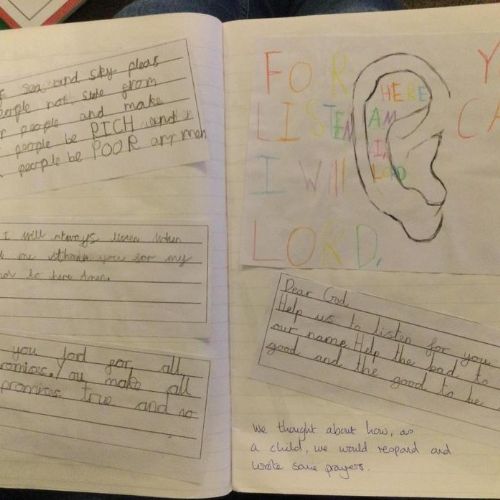 sea, and sky pleas
people not, side from
people and make
people be PICH and
people be POOR any men
I will always listen when
me thank you for my
to here
you god for all
you make all
promises true and so
FOR Y
HERE
LISTEN CA
AM
IN
I Will
LORD
LORD.
Dear God
Help us to listen for you
our name. Help the bad to
good and the good to be
We thought about how, as
a child, we would respond and
wrote some prayers.